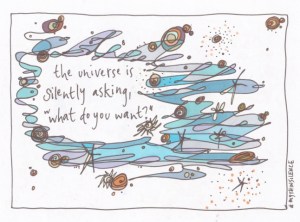 the universe is
silently asking,
"what do you want?"
#MYSKINSILENCE